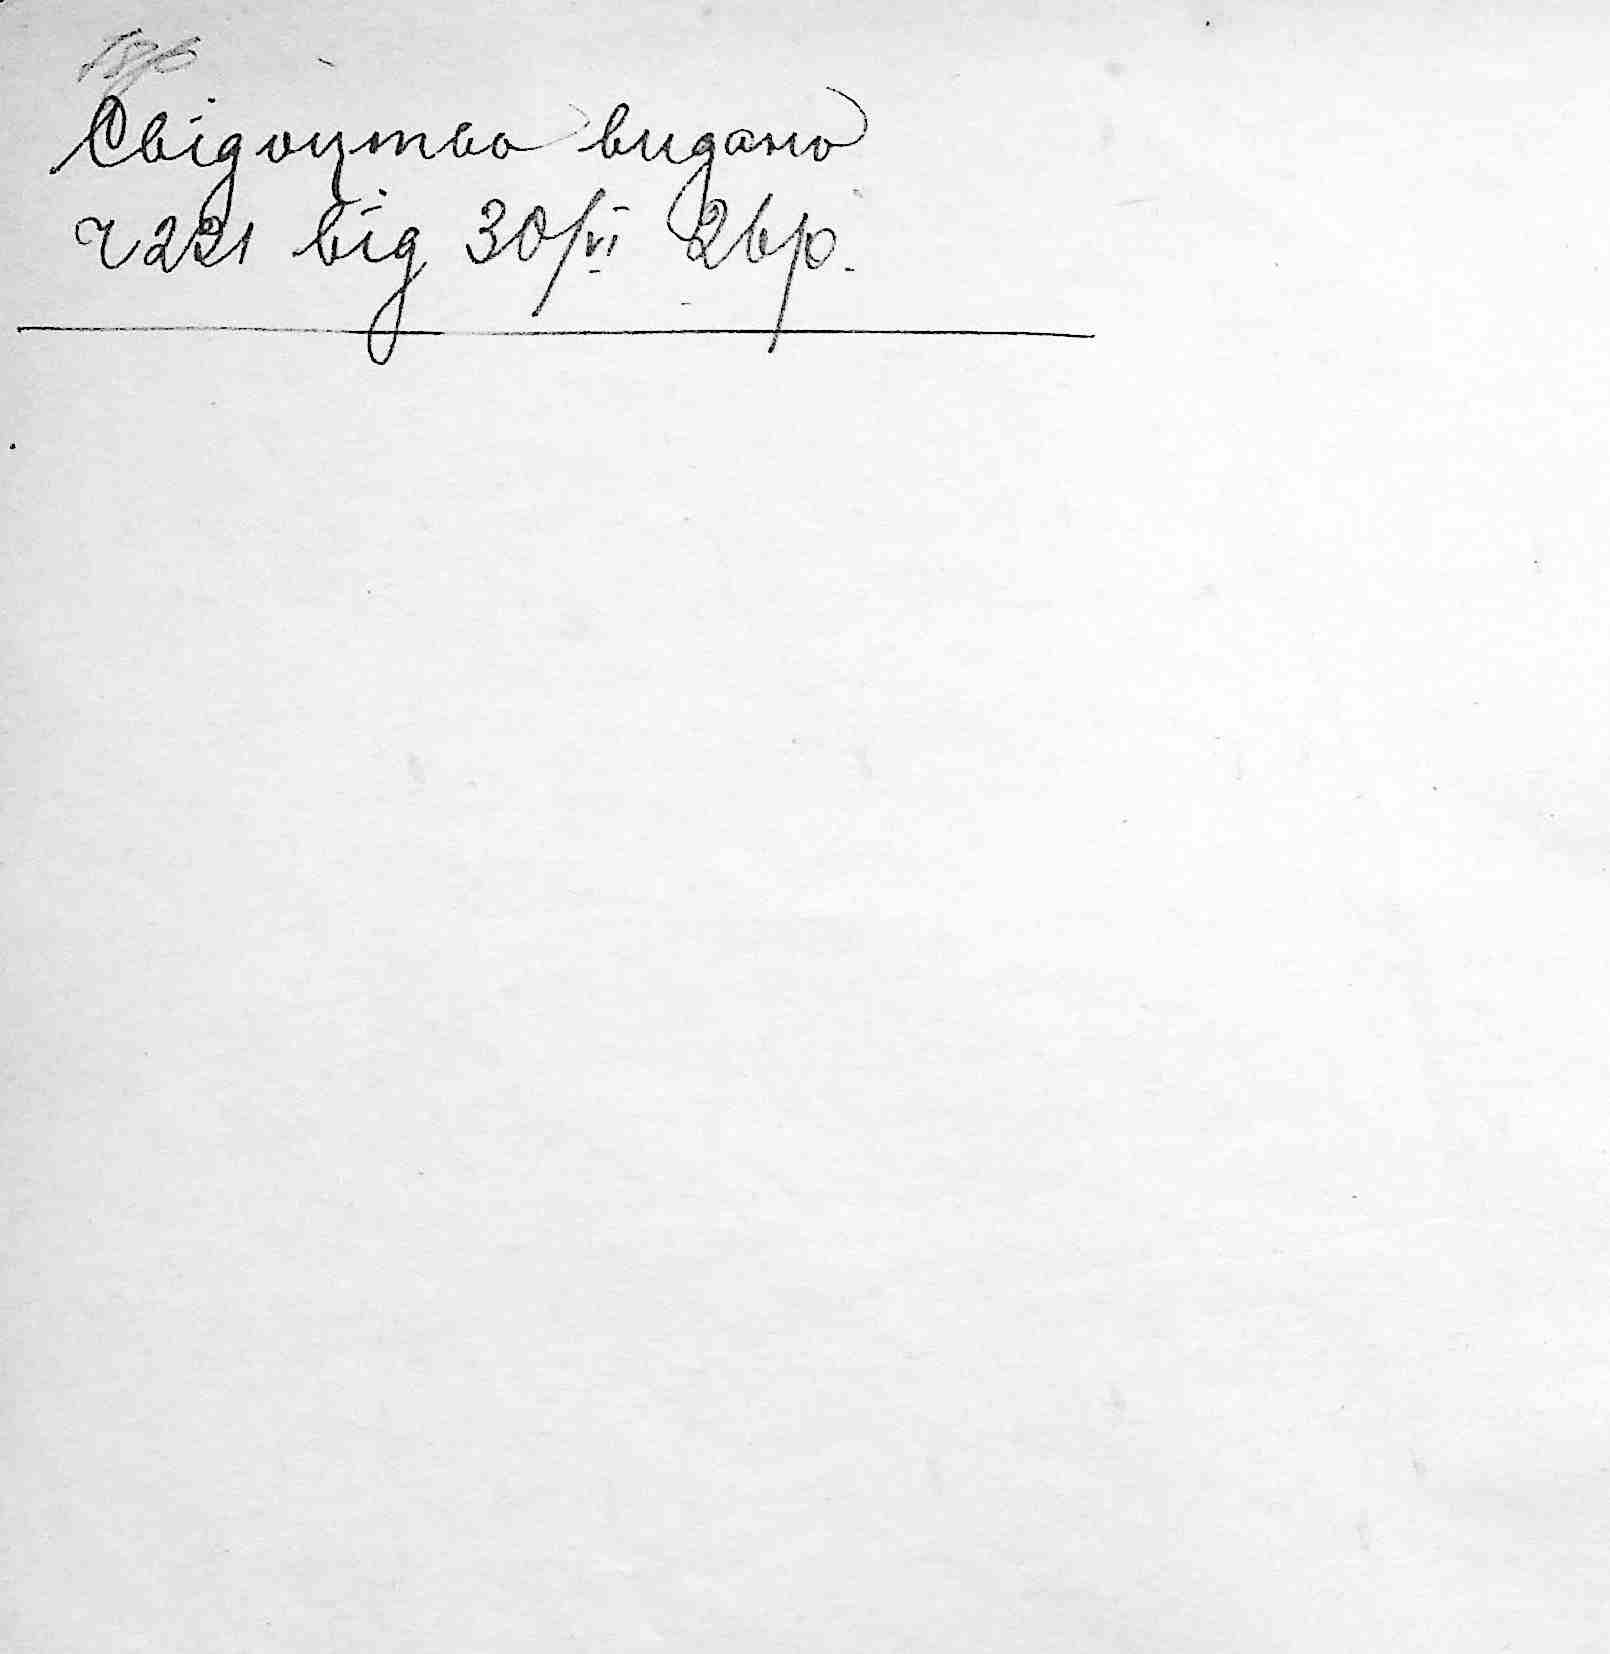 Свідоцтво видано
ч 221 від 30/VI 26р.